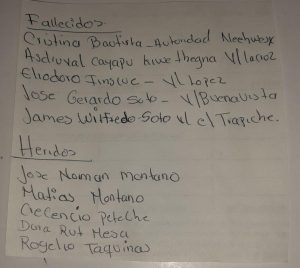 Fallecidos
Cristina Bautista - Autoridad Neehwesx
Asdruval Cayapu kiwe thegna V/
Eliodoro Finscue - V/ Lopez
Jose Gerardo Soto - V/Buenavista
James Wilfredo Soto V/ el Trapiche.
Heridos
Jose Norman Montano
Matias Montano
Crecencio Peteche
Dora Rut Mesa
Rogelio Taquinas